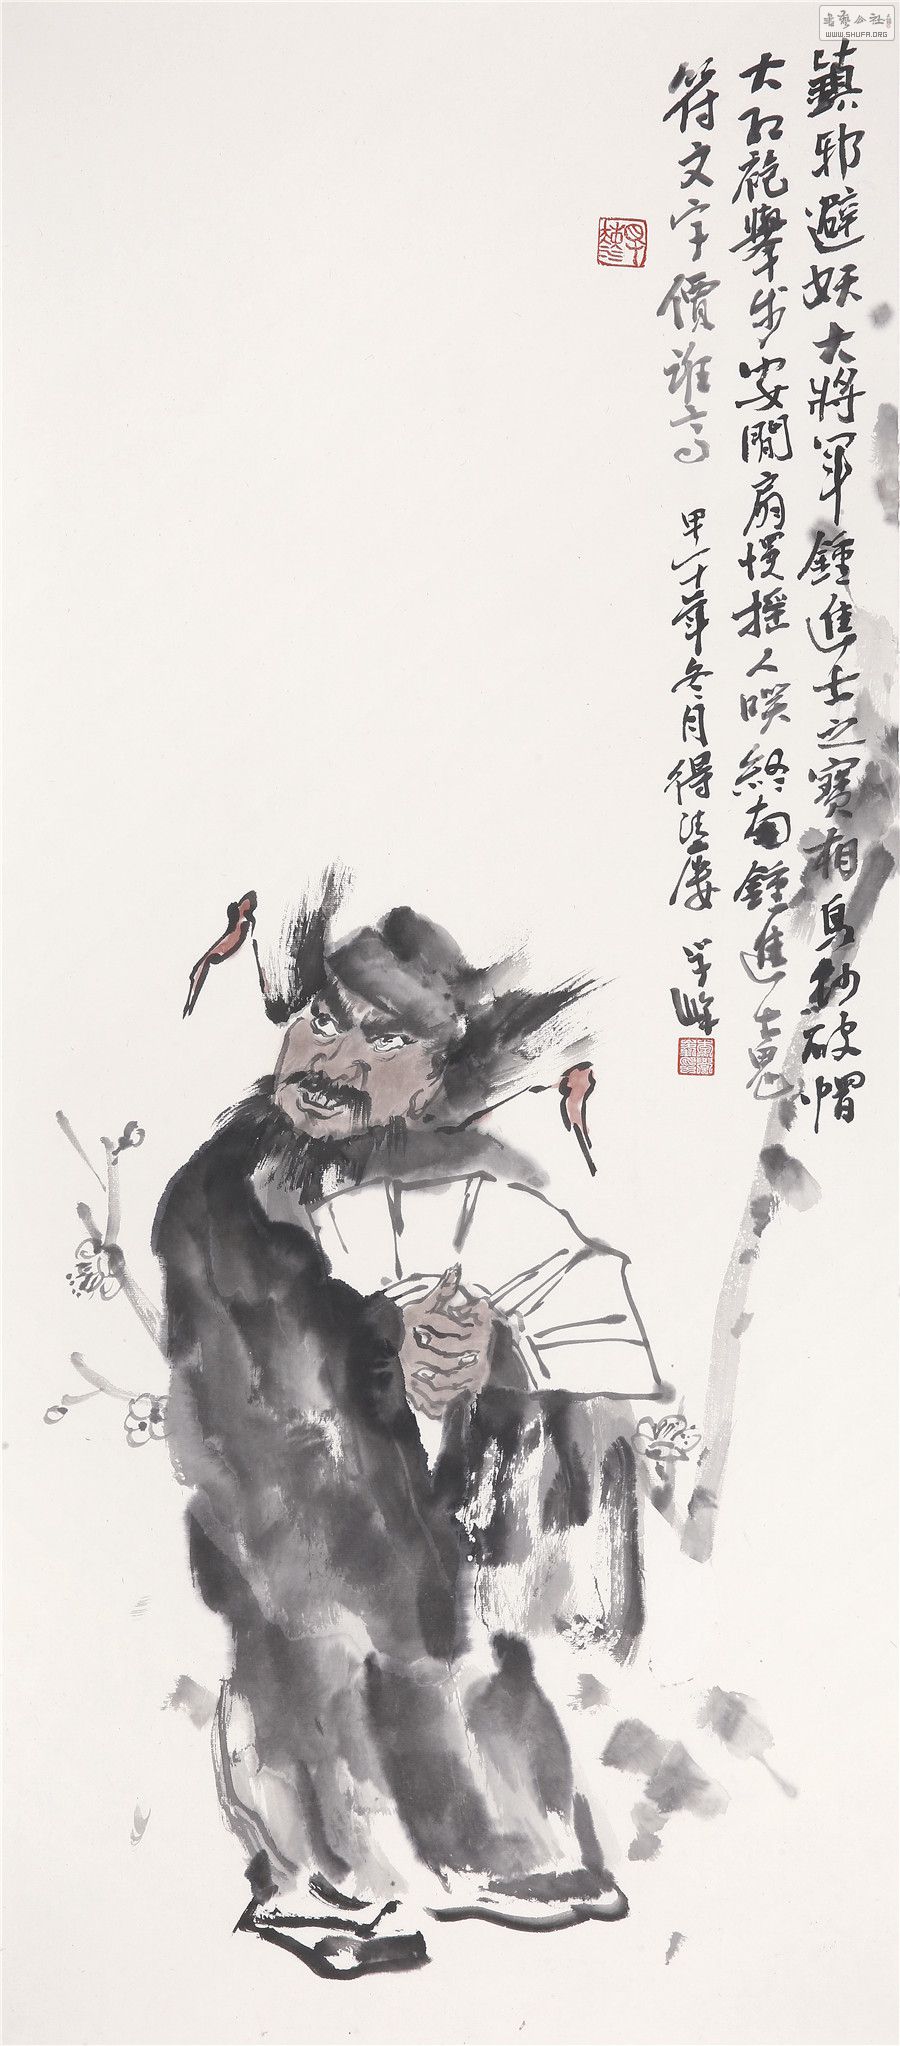 鎮邪避妖大將軍鍾進士之寶相烏紗破帽
大紅袍舉步安閒扇慢搖人笑終南鍾進士鬼
符文字價誰高
甲午年冬月得法廔 学峰
書藝公社
WWW.SHUFA.ORG